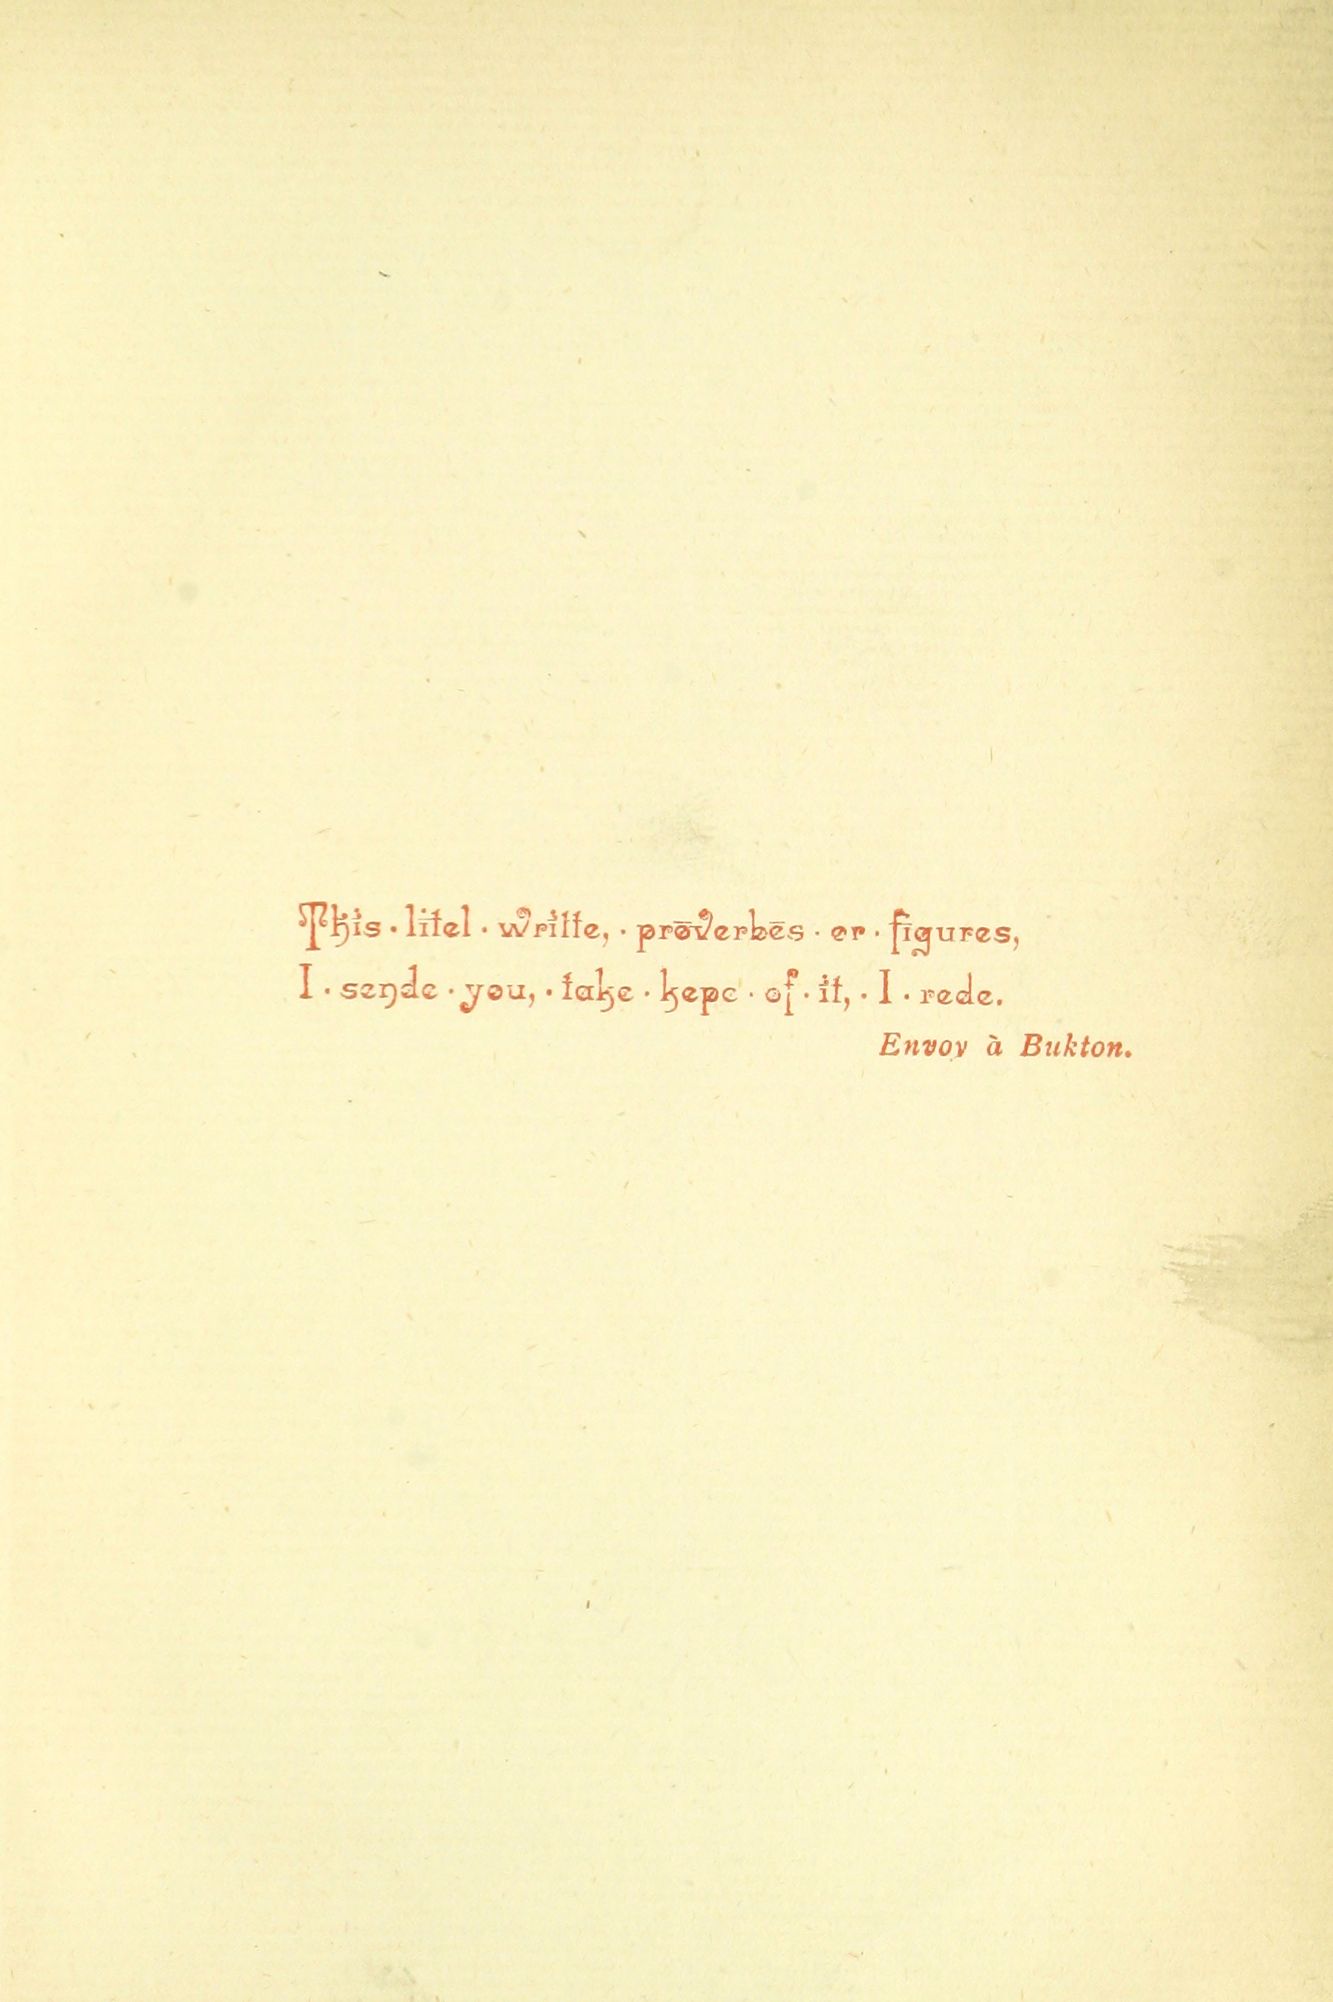 This · litel · writte, · proverbes · or · figures,
I · sende · you, · take · kepe · of · it, · I · rede.
Envoy à Bukton.